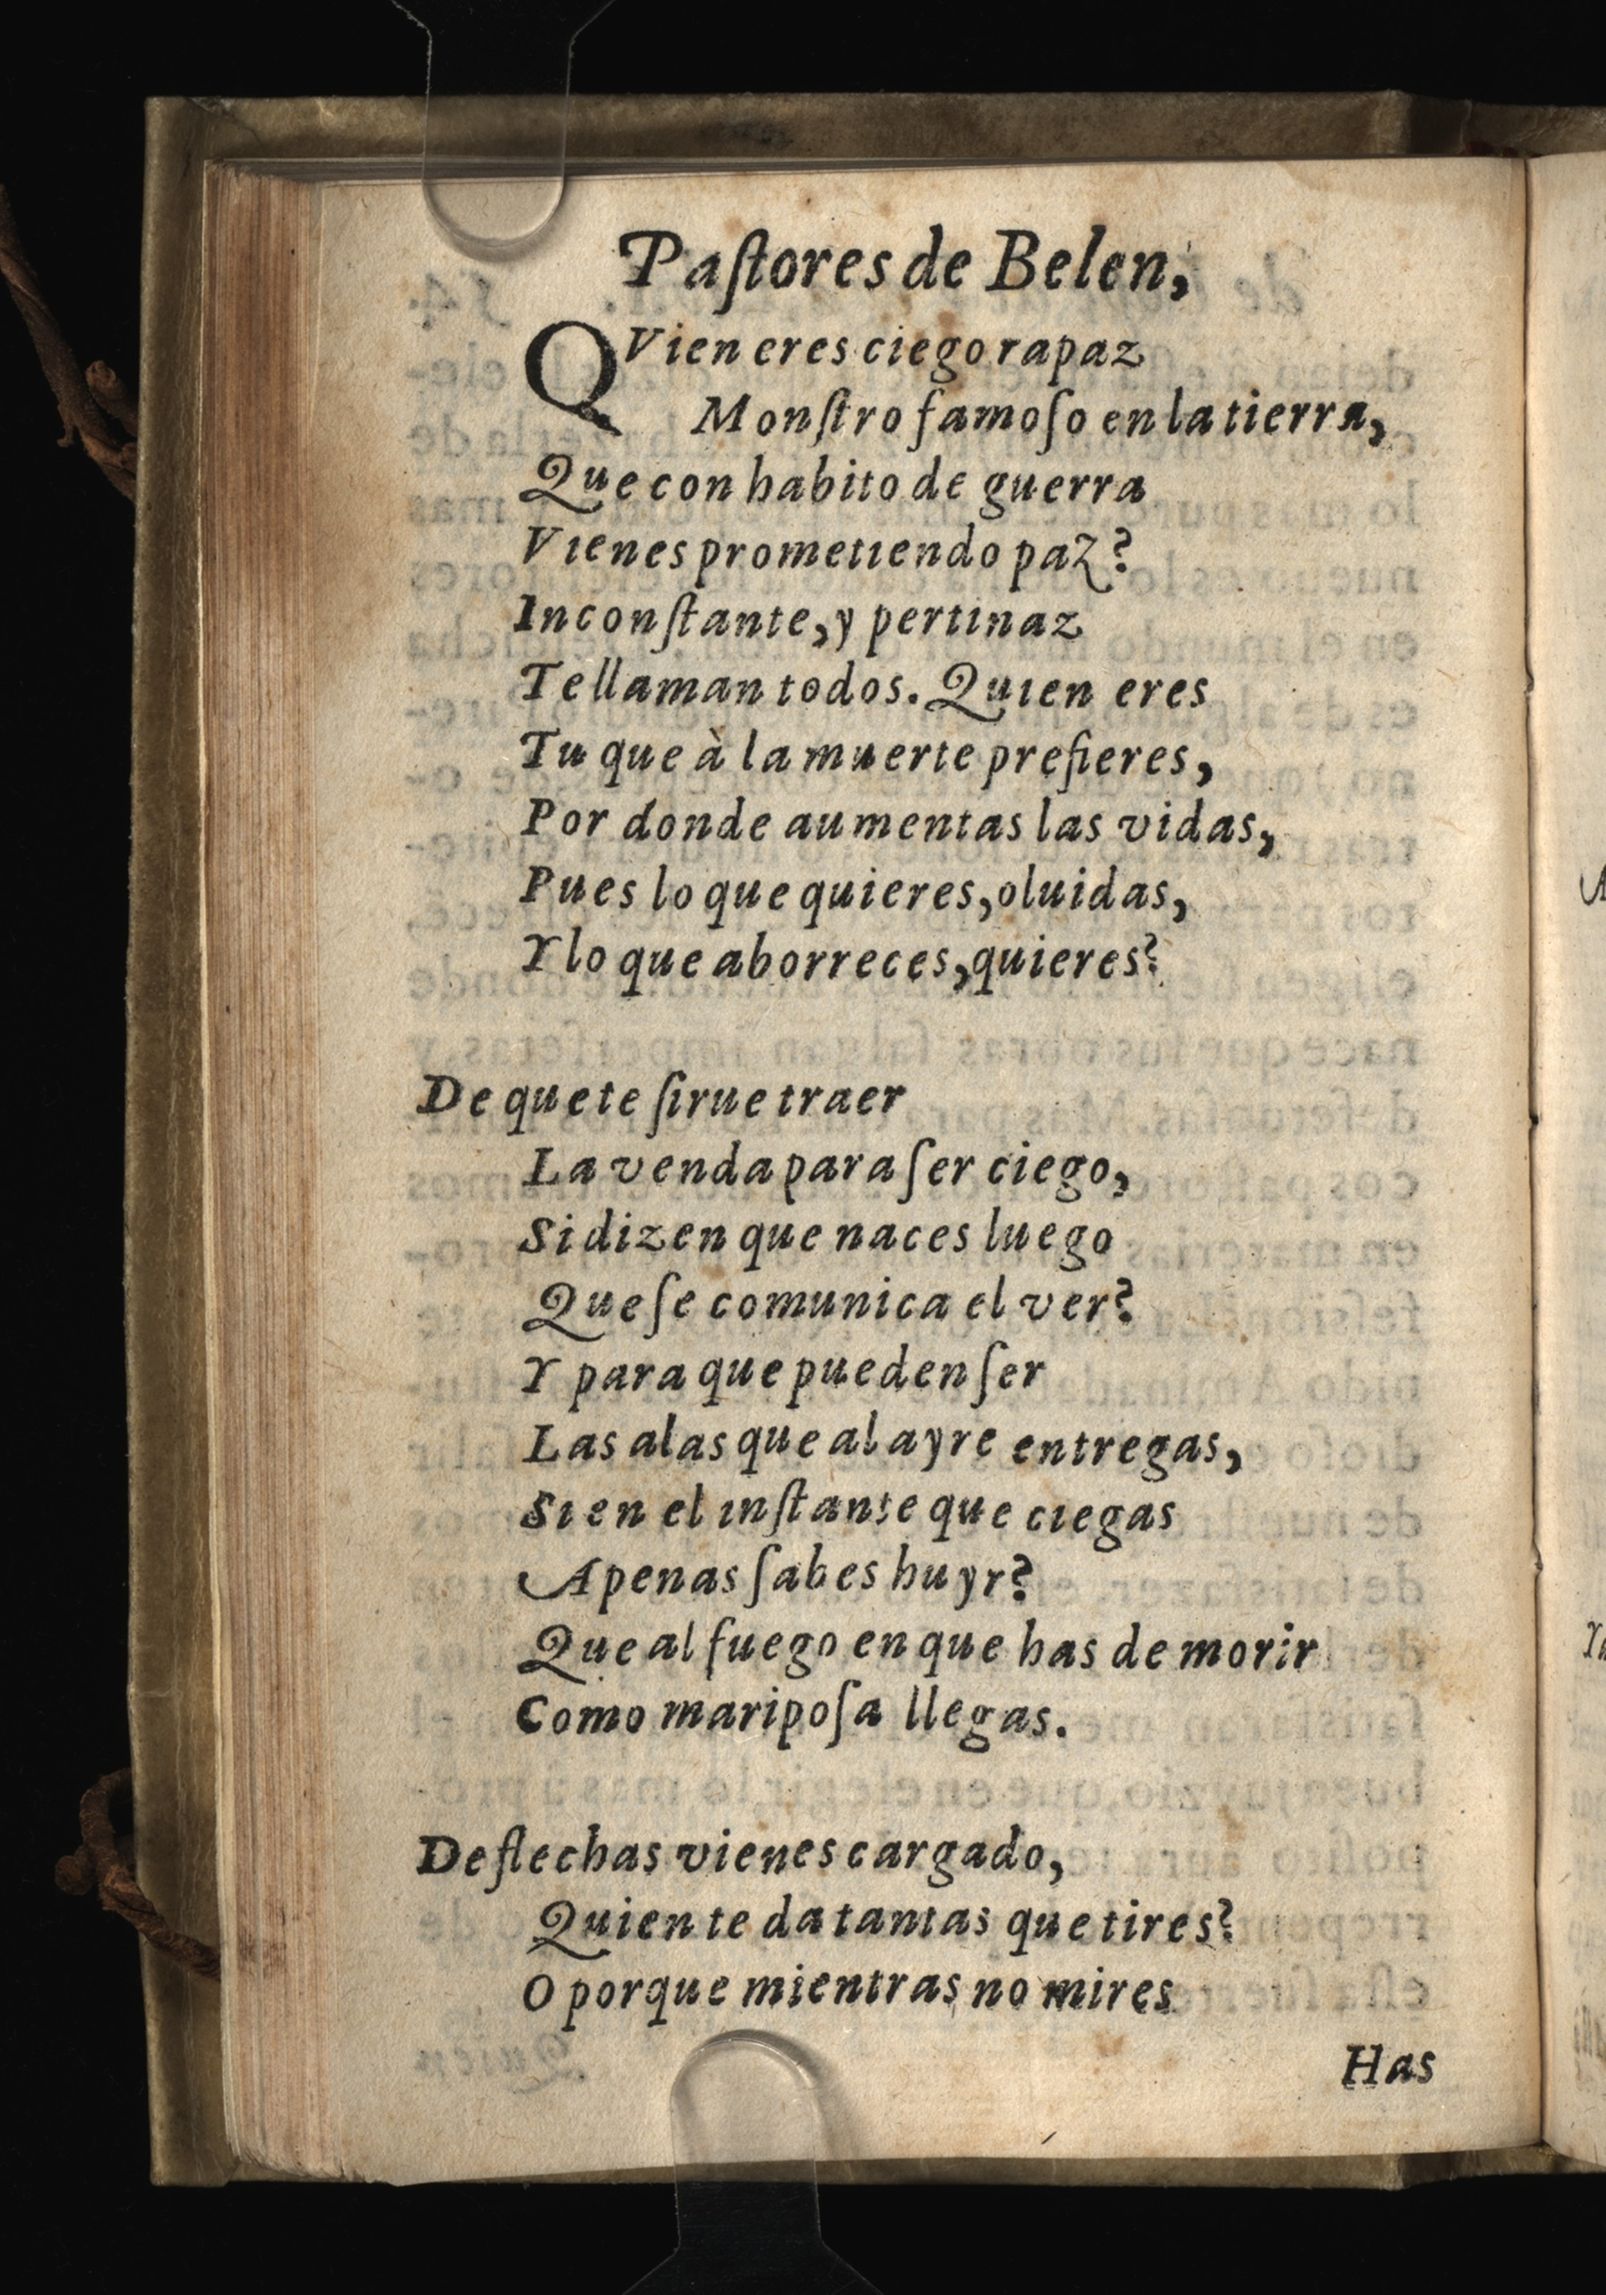 Paſtores de Belen,
QVien eres ciego rapaz
Monſtro famoſo en la tierra,
Que con habito de guerra
Vienes prometiendo paz?
Inconſtante, y pertinaz
Te llaman todos. Quien eres
Tu que à la muerte prefieres,
Por donde aumentas las vidas,
Pues lo que quieres, oluidas,
Y lo que aborreces, quieres?
De que te ſirue traer
La venda para ſer ciego,
Si dizen que naces luego
Que ſe comunica el ver?
Y para que pueden ſer
Las alas que al ayre entregas,
Si en el inſtante que ciegas
Apenas ſabes huyr?
Que al fuego en que has de morir
Como maripoſa llegas.
De flechas vienes cargado,
Quien te da tantas que tires?
O porque mientras no mires
Has